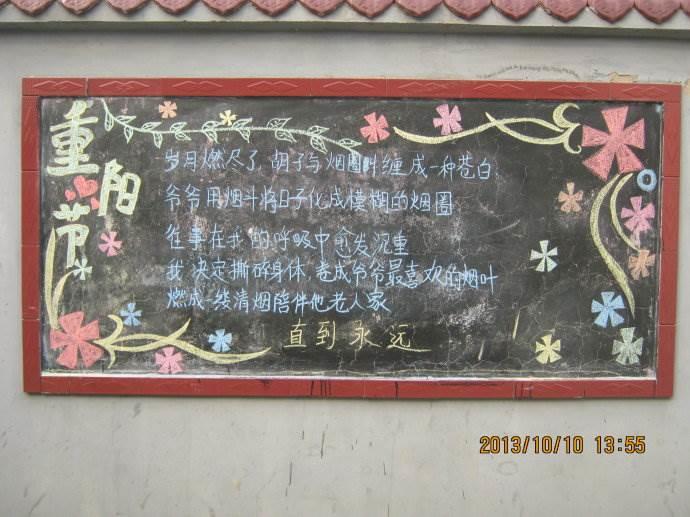 重阳节
岁月燃尽了 胡子与烟圈纠缠成一种苍白
爷爷用烟斗将日子化成模糊的烟圈
往事在我的呼吸中愈发沉重
我决定撕碎身体 卷成爷爷最喜欢的烟叶
燃成一缕清烟陪伴他老人家
直到永远
2013/10/10 13:55